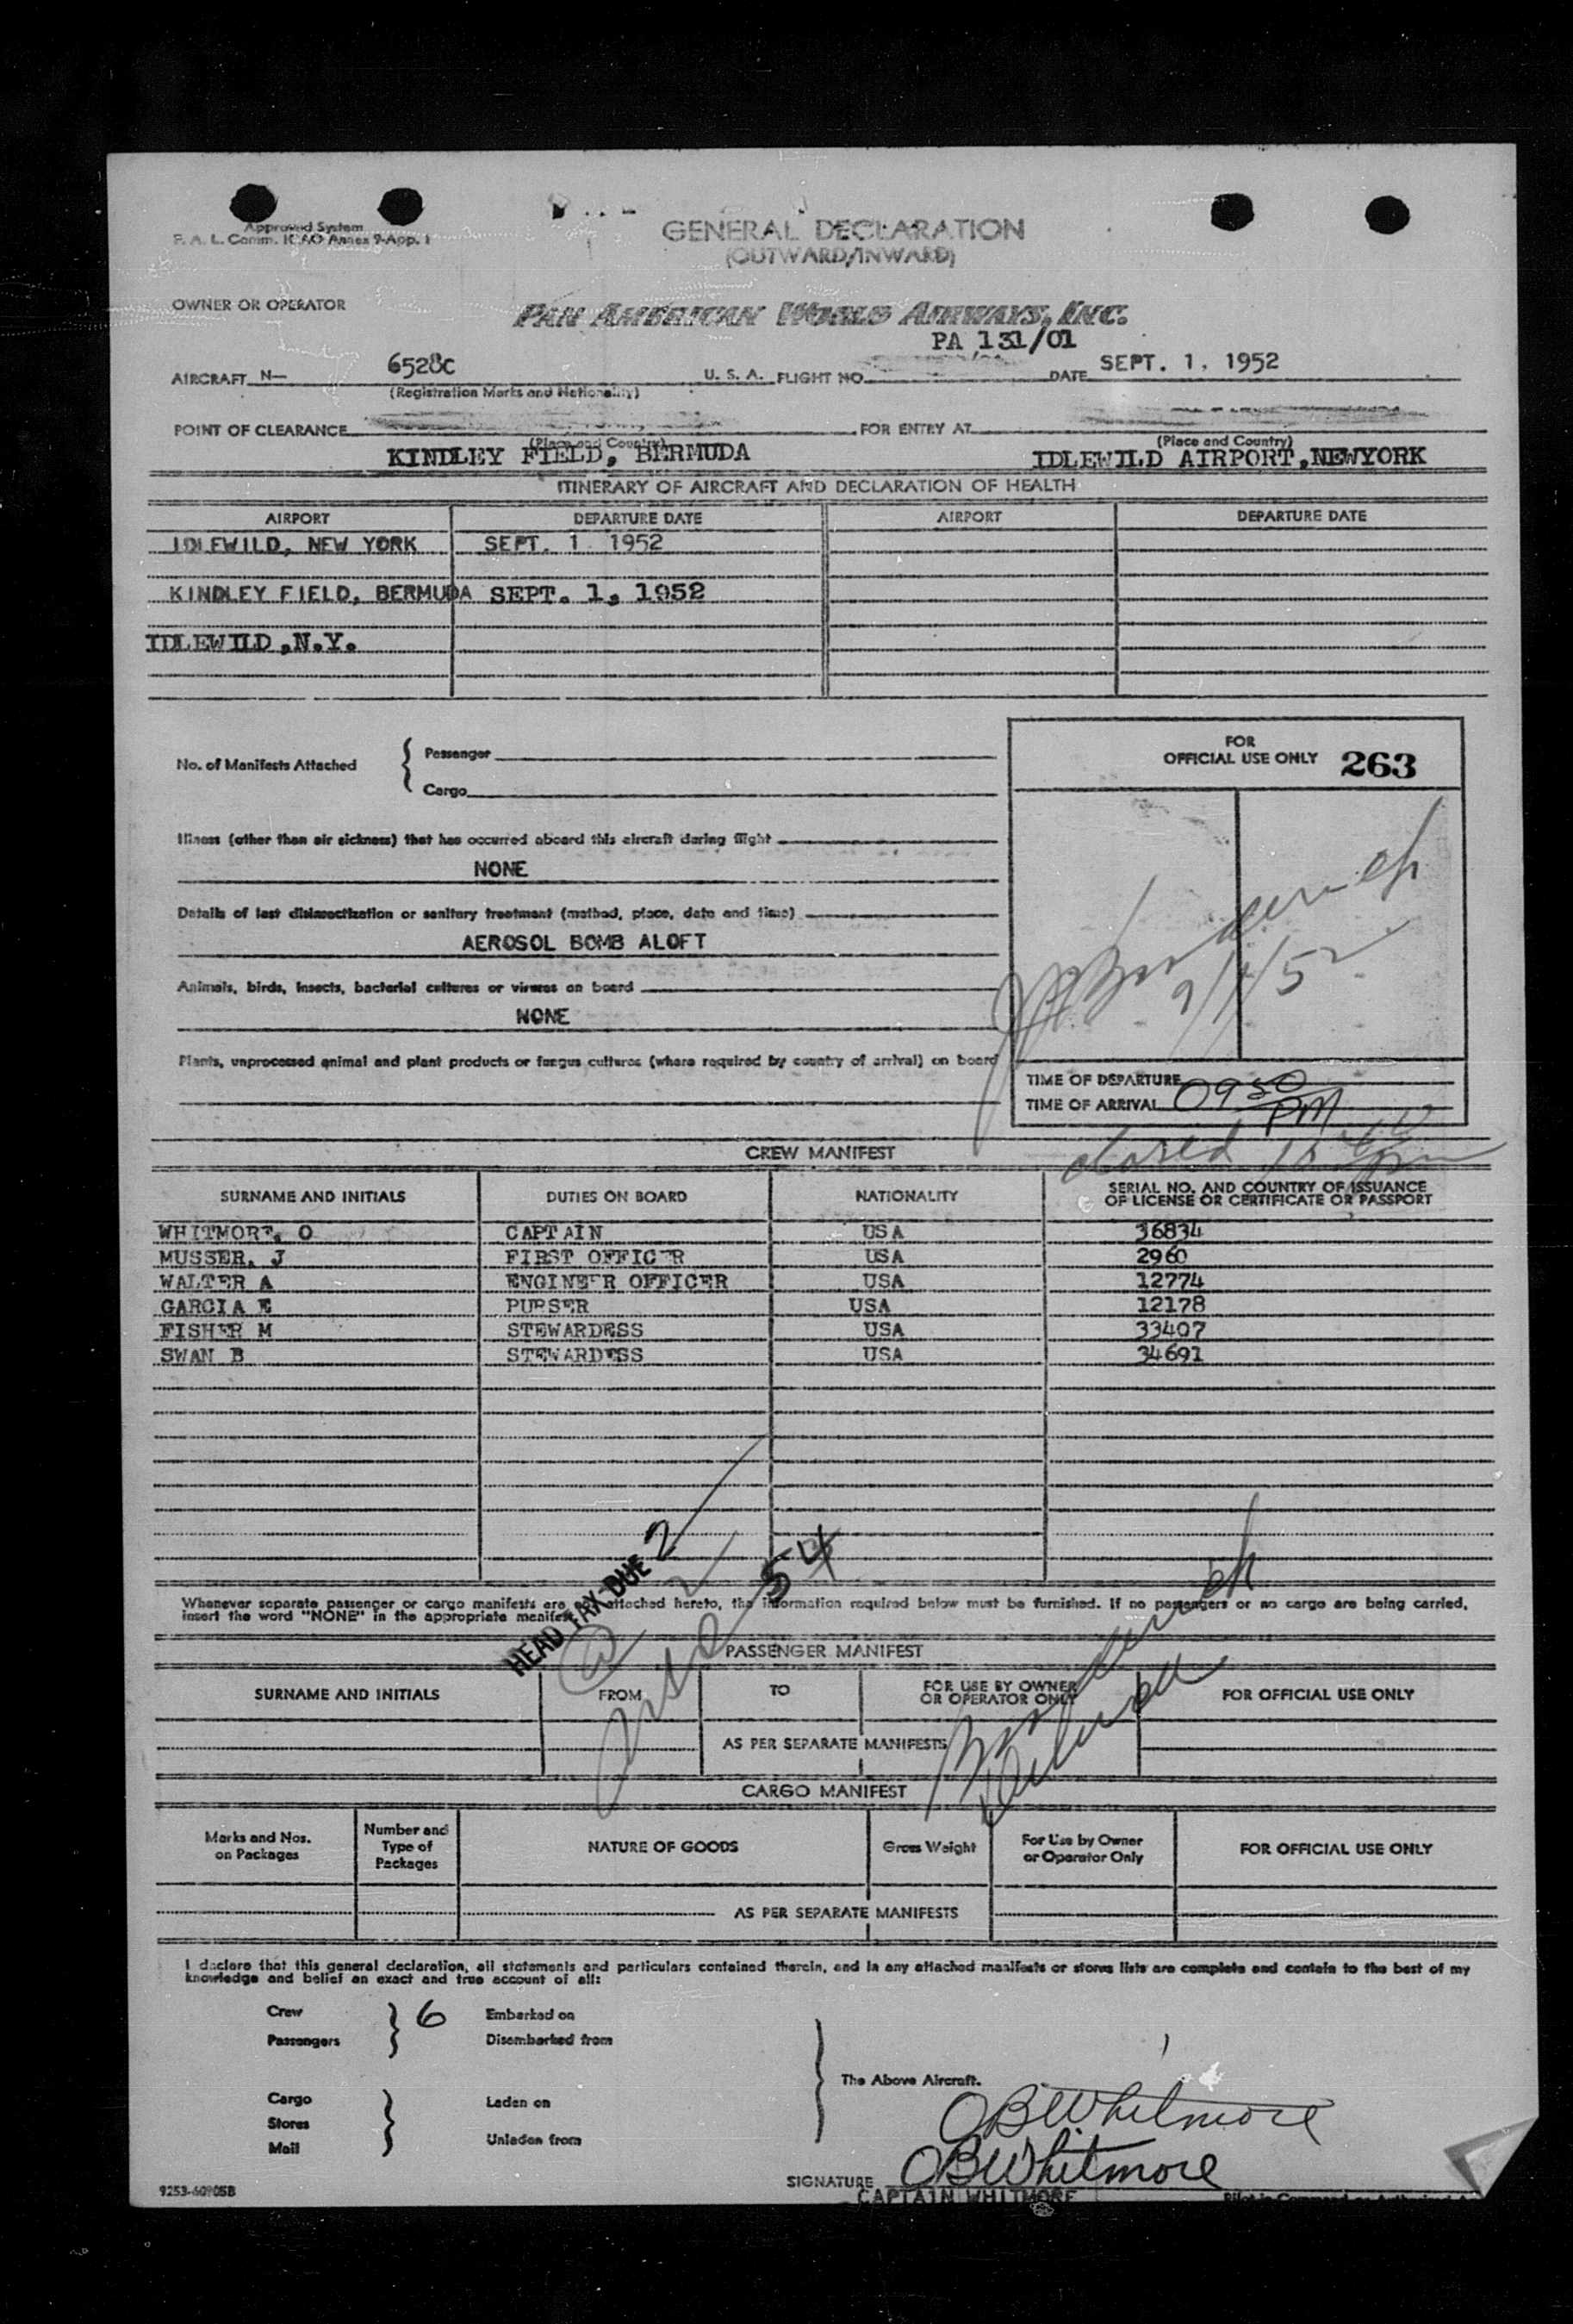 Approved System
F. A. L. Comm. ICAO Annex 9-App. 1
GENERAL DECLARATION
(OUTWARD/INWARD)
OWNER OR OPERATOR
PAN AMERICAN WORLD AIRWAYS, INC.
PA 131/01
AIRCRAFT N— 6528C U. S. A. FLIGHT NO. DATE SEPT. 1, 1952
(Registration Marks and Nationality)
POINT OF CLEARANCE FOR ENTRY AT
(Place and Country) (Place and Country)
KINDLEY FIELD, BERMUDA IDLEWILD AIRPORT,NEWYORK
ITINERARY OF AIRCRAFT AND DECLARATION OF HEALTH
AIRPORT DEPARTURE DATE AIRPORT DEPARTURE DATE
IDLEWILD, NEW YORK SEPT. 1 1952
KINDLEY FIELD, BERMUDA SEPT. 1, 1952
IDLEWILD,N.Y.
No. of Manifests Attached { Passenger
Cargo
FOR
OFFICIAL USE ONLY 263
Illness (other than air sickness) that has occurred aboard this aircraft during flight
NONE
Details of last disinsectization or sanitary treatment (method, place, date and time)
AEROSOL BOMB ALOFT
Animals, birds, insects, bacterial cultures or viruses on board
NONE
9/1/52
Plants, unprocessed animal and plant products or fungus cultures (where required by country of arrival) on board
TIME OF DEPARTURE
TIME OF ARRIVAL 0950 PM
CREW MANIFEST
SURNAME AND INITIALS DUTIES ON BOARD NATIONALITY SERIAL NO. AND COUNTRY OF ISSUANCE
OF LICENSE OR CERTIFICATE OR PASSPORT
WHITMORE, O CAPTAIN USA 36834
MUSSER, J FIRST OFFICER USA 2960
WALTER A ENGINEER OFFICER USA 12774
GARCIA E PURSER USA 12178
FISHER M STEWARDESS USA 33407
SWAN B STEWARDESS USA 34691
HEAD TAX DUE 2
54
Whenever separate passenger or cargo manifests are not attached hereto, the information required below must be furnished. If no passengers or no cargo are being carried,
insert the word "NONE" in the appropriate manifest.
PASSENGER MANIFEST
SURNAME AND INITIALS FROM TO FOR USE BY OWNER
OR OPERATOR ONLY FOR OFFICIAL USE ONLY
AS PER SEPARATE MANIFESTS
CARGO MANIFEST
Marks and Nos.
on Packages Number and
Type of
Packages NATURE OF GOODS Gross Weight For Use by Owner
or Operator Only FOR OFFICIAL USE ONLY
AS PER SEPARATE MANIFESTS
I declare that this general declaration, all statements and particulars contained therein, and in any attached manifests or stores lists are complete and contain to the best of my
knowledge and belief an exact and true account of all:
Crew 6 Embarked on
Passengers Disembarked from
The Above Aircraft.
Cargo Laden on
Stores
Mail Unladen from
OBWhitmore
SIGNATURE OBWhitmore
CAPTAIN WHITMORE
9253-60905B